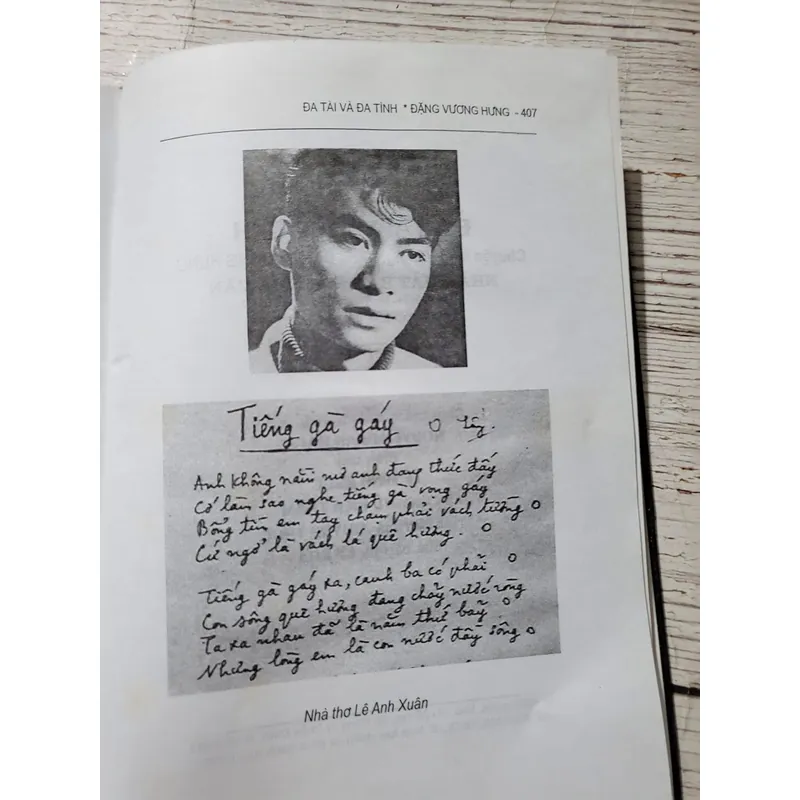 ĐA TÀI VÀ ĐA TÌNH * ĐẶNG VƯƠNG HƯNG - 407
Tiếng gà gáy
Anh không nằm mơ anh đang thức đấy
Cớ làm sao nghe tiếng gà vọng gáy
Bỗng tìm em tay chạm phải vách tường
Cứ ngỡ là vách lá quê hương.
Tiếng gà gáy xa, canh ba có phải
Con sông quê hương đang chảy nước ròng
Ta xa nhau đã là năm thứ bảy
Nhưng lòng em là con nước đầy sông
Nhà thơ Lê Anh Xuân